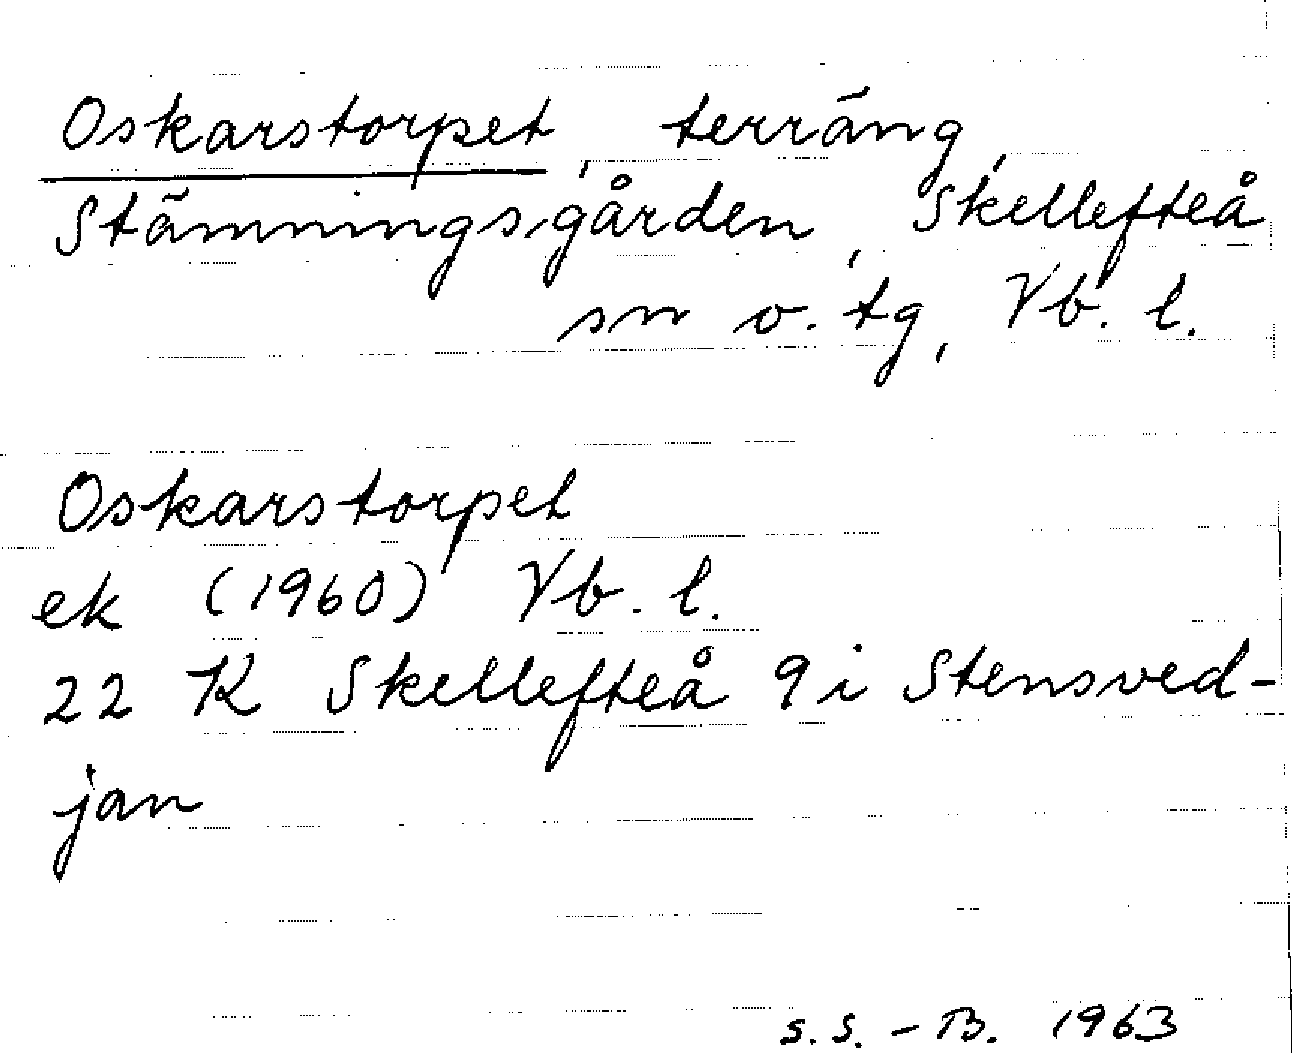 Oskarstorpet, terräng,
Stämningsgården, Skellefteå
sn o. tg, Vb. l.
Oskarstorpet
ek (1960) Vb. l.
22 K Skellefteå 9i Stensved-
jan
S.S. - B. 1963